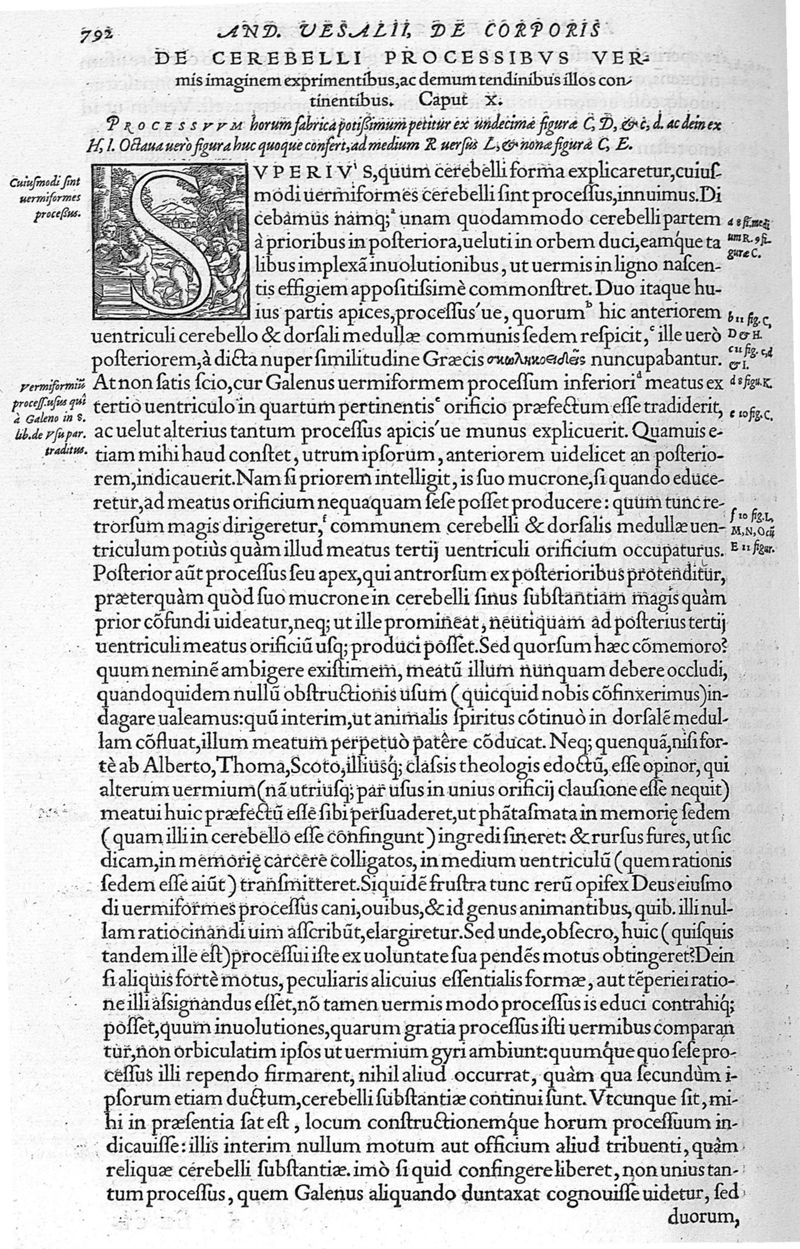 792 AND. VESALII, DE CORPORIS
DE CEREBELLI PROCESSIBVS VER-
mis imaginem exprimentibus, ac demum tendinibus illos con-
tinentibus. Caput X.
PROCESSVVM horum fabrica potißimum petitur ex undecimæ figuræ C, D, & c, d. ac dein ex
H, I. Octaua uero figura huc quoque confert, ad medium R uersus L, & nonæ figuræ C, E.
Cuiusmodi sint
uermiformes
processus.
SVPERIVS, quum cerebelli forma explicaretur, cuius-
modi uermiformes cerebelli sint processus, innuimus. Di
cebamus namq; ᵃ unam quodammodo cerebelli partem
à prioribus in posteriora, ueluti in orbem duci, eamq́ue ta
libus implexã inuolutionibus, ut uermis in ligno nascen-
tis effigiem appositissimè commonstret. Duo itaque hu-
ius partis apices, processus'ue, quorum ᵇ hic anteriorem
uentriculi cerebello & dorsali medullæ communis sedem respicit, ᶜ ille uerò
posteriorem, à dicta nuper similitudine Græcis σκωληκοειδεῖς nuncupabantur.
a 8 fi. medi
um R. 9 fi-
guræ C.
b 11 fig. C,
D & H.
c 11 fig. c, d
& I.
Vermiformiũ
process. usus quì
à Galeno in 8.
lib. de vsu par.
traditus.
At non satis scio, cur Galenus uermiformem processum inferiori ᵈ meatus ex
tertio uentriculo in quartum pertinentis ᵉ orificio præfectum esse tradiderit,
ac uelut alterius tantum processus apicis'ue munus explicuerit. Quamuis e-
tiam mihi haud constet, utrum ipsorum, anteriorem uidelicet an posterio-
rem, indicauerit. Nam si priorem intelligit, is suo mucrone, si quando educe-
retur, ad meatus orificium nequaquam sese posset producere: quum tunc re-
trorsum magis dirigeretur, ᶠ communem cerebelli & dorsalis medullæ uen-
triculum potiùs quàm illud meatus tertij uentriculi orificium occupaturus.
d 8 fig. K.
e 10 fig. C.
f 10 fig. L,
M, N, O cũ
E 11 figur.
Posterior aũt processus seu apex, qui antrorsum ex posterioribus protenditur,
præterquàm quòd suo mucrone in cerebelli sinus substantiam magis quàm
prior cõfundi uideatur, neq; ut ille promineat, neutiquam ad posterius tertij
uentriculi meatus orificiũ usq; produci posset. Sed quorsum hæc cõmemoro?
quum neminẽ ambigere existimem, meatũ illum nunquam debere occludi,
quandoquidem nullũ obstructionis usum (quicquid nobis cõfinxerimus) in-
dagare ualeamus: quũ interim, ut animalis spiritus cõtinuò in dorsalẽ medul-
lam cõfluat, illum meatum perpetuò patêre cõducat. Neq; quenquã, nisi for-
tè ab Alberto, Thoma, Scoto, illiusq́; classis theologis edoctũ, esse opinor, qui
alterum uermium (nã utriusq; par usus in unius orificij clausione esse nequit)
meatui huic præfectũ esse sibi persuaderet, ut phãtasmata in memorię sedem
(quam illi in cerebello esse confingunt) ingredi sineret: & rursus fures, ut sic
dicam, in memorię carcere colligatos, in medium uentriculũ (quem rationis
sedem esse aiũt) transmitteret. Siquidẽ frustra tunc rerũ opifex Deus eiusmo
di uermiformes processus cani, ouibus, & id genus animantibus, quib. illi nul-
lam ratiocinandi uim ascribũt, elargiretur. Sed unde, obsecro, huic (quisquis
tandem ille est) processui iste ex uoluntate sua pendẽs motus obtingeret? Dein
si aliquis fortè motus, peculiaris alicuius essentialis formæ, aut tẽperiei ratio-
ne illi assignandus esset, nõ tamen uermis modo processus is educi contrahiq́;
posset, quum inuolutiones, quarum gratia processus isti uermibus comparan
tur, non orbiculatim ipsos ut uermium gyri ambiunt: quumq́ue quo sese pro-
cessus illi rependo firmarent, nihil aliud occurrat, quàm qua secundùm i-
psorum etiam ductum, cerebelli substantiæ continui sunt. Vtcunque sit, mi-
hi in præsentia sat est, locum constructionemq́ue horum processuum in-
dicauisse: illis interim nullum motum aut officium aliud tribuenti, quàm
reliquæ cerebelli substantiæ. imò si quid confingere liberet, non unius tan-
tum processus, quem Galenus aliquando duntaxat cognouisse uidetur, sed
duorum,